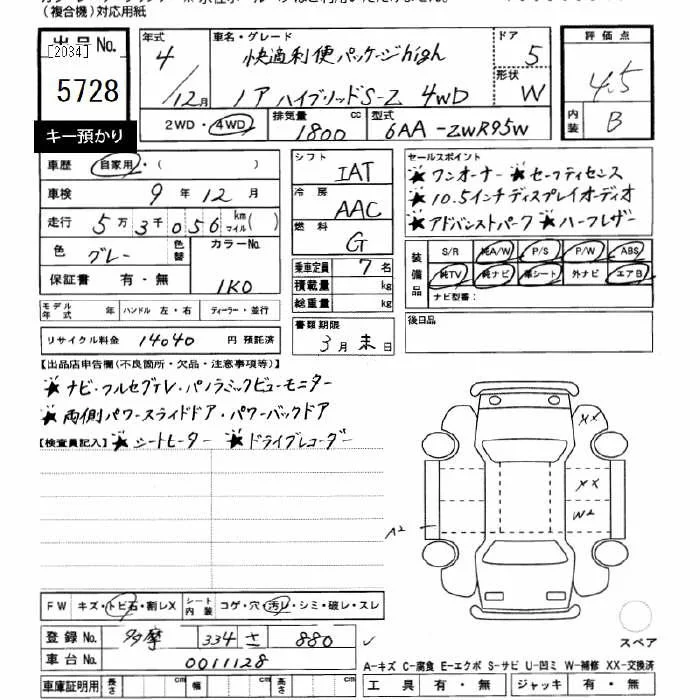 (複合機)対応用紙
出品No.
[2034]
5728
キー預かり
年式
4
/12月
車名・グレード
快適利便パッケージhigh
ノア ハイブリッドS-Z 4WD
ドア
5
形状
W
評価点
4.5
内装
B
2WD・4WD
排気量
1800
cc
型式
6AA-ZWR95W
車歴
自家用・( )
車検
9年12月
走行
5万3千056 km マイル( )
色
グレー
色替
カラーNo.
1K0
保証書 有・無
シフト
IAT
冷房
AAC
燃料
G
乗車定員 7名
積載量 kg
総重量 kg
セールスポイント
★ワンオーナー ★セーフティセンス
★10.5インチディスプレイオーディオ
★アドバンストパーク ★ハーフレザー
装備品
S/R 純A/W P/S P/W ABS
純TV 純ナビ 革シート 外ナビ エアB
ナビ型番:
モデル年式 年 ハンドル 左・右 ディーラー・並行
リサイクル料金 14040 円 預託済
書類期限
3月末日
後日品
【出品店申告欄(不良箇所・欠品・注意事項等)】
★ナビ・フルセグTV・パノラミックビューモニター
★両側パワースライドドア・パワーバックドア
【検査員記入】★シートヒーター ★ドライブレコーダー
XX
XX
W2
A2
FW キズ・トビ石・割レX
シート内装 コゲ・穴・汚レ・シミ・破レ・スレ
登録No. 多摩 334 さ 880
車台No. 0011128
車庫証明用 長さ cm 幅 cm 高さ cm
スペア
A-キズ C-腐食 E-エクボ S-サビ U-凹ミ W-補修 XX-交換済
工具 有・無 ジャッキ 有・無